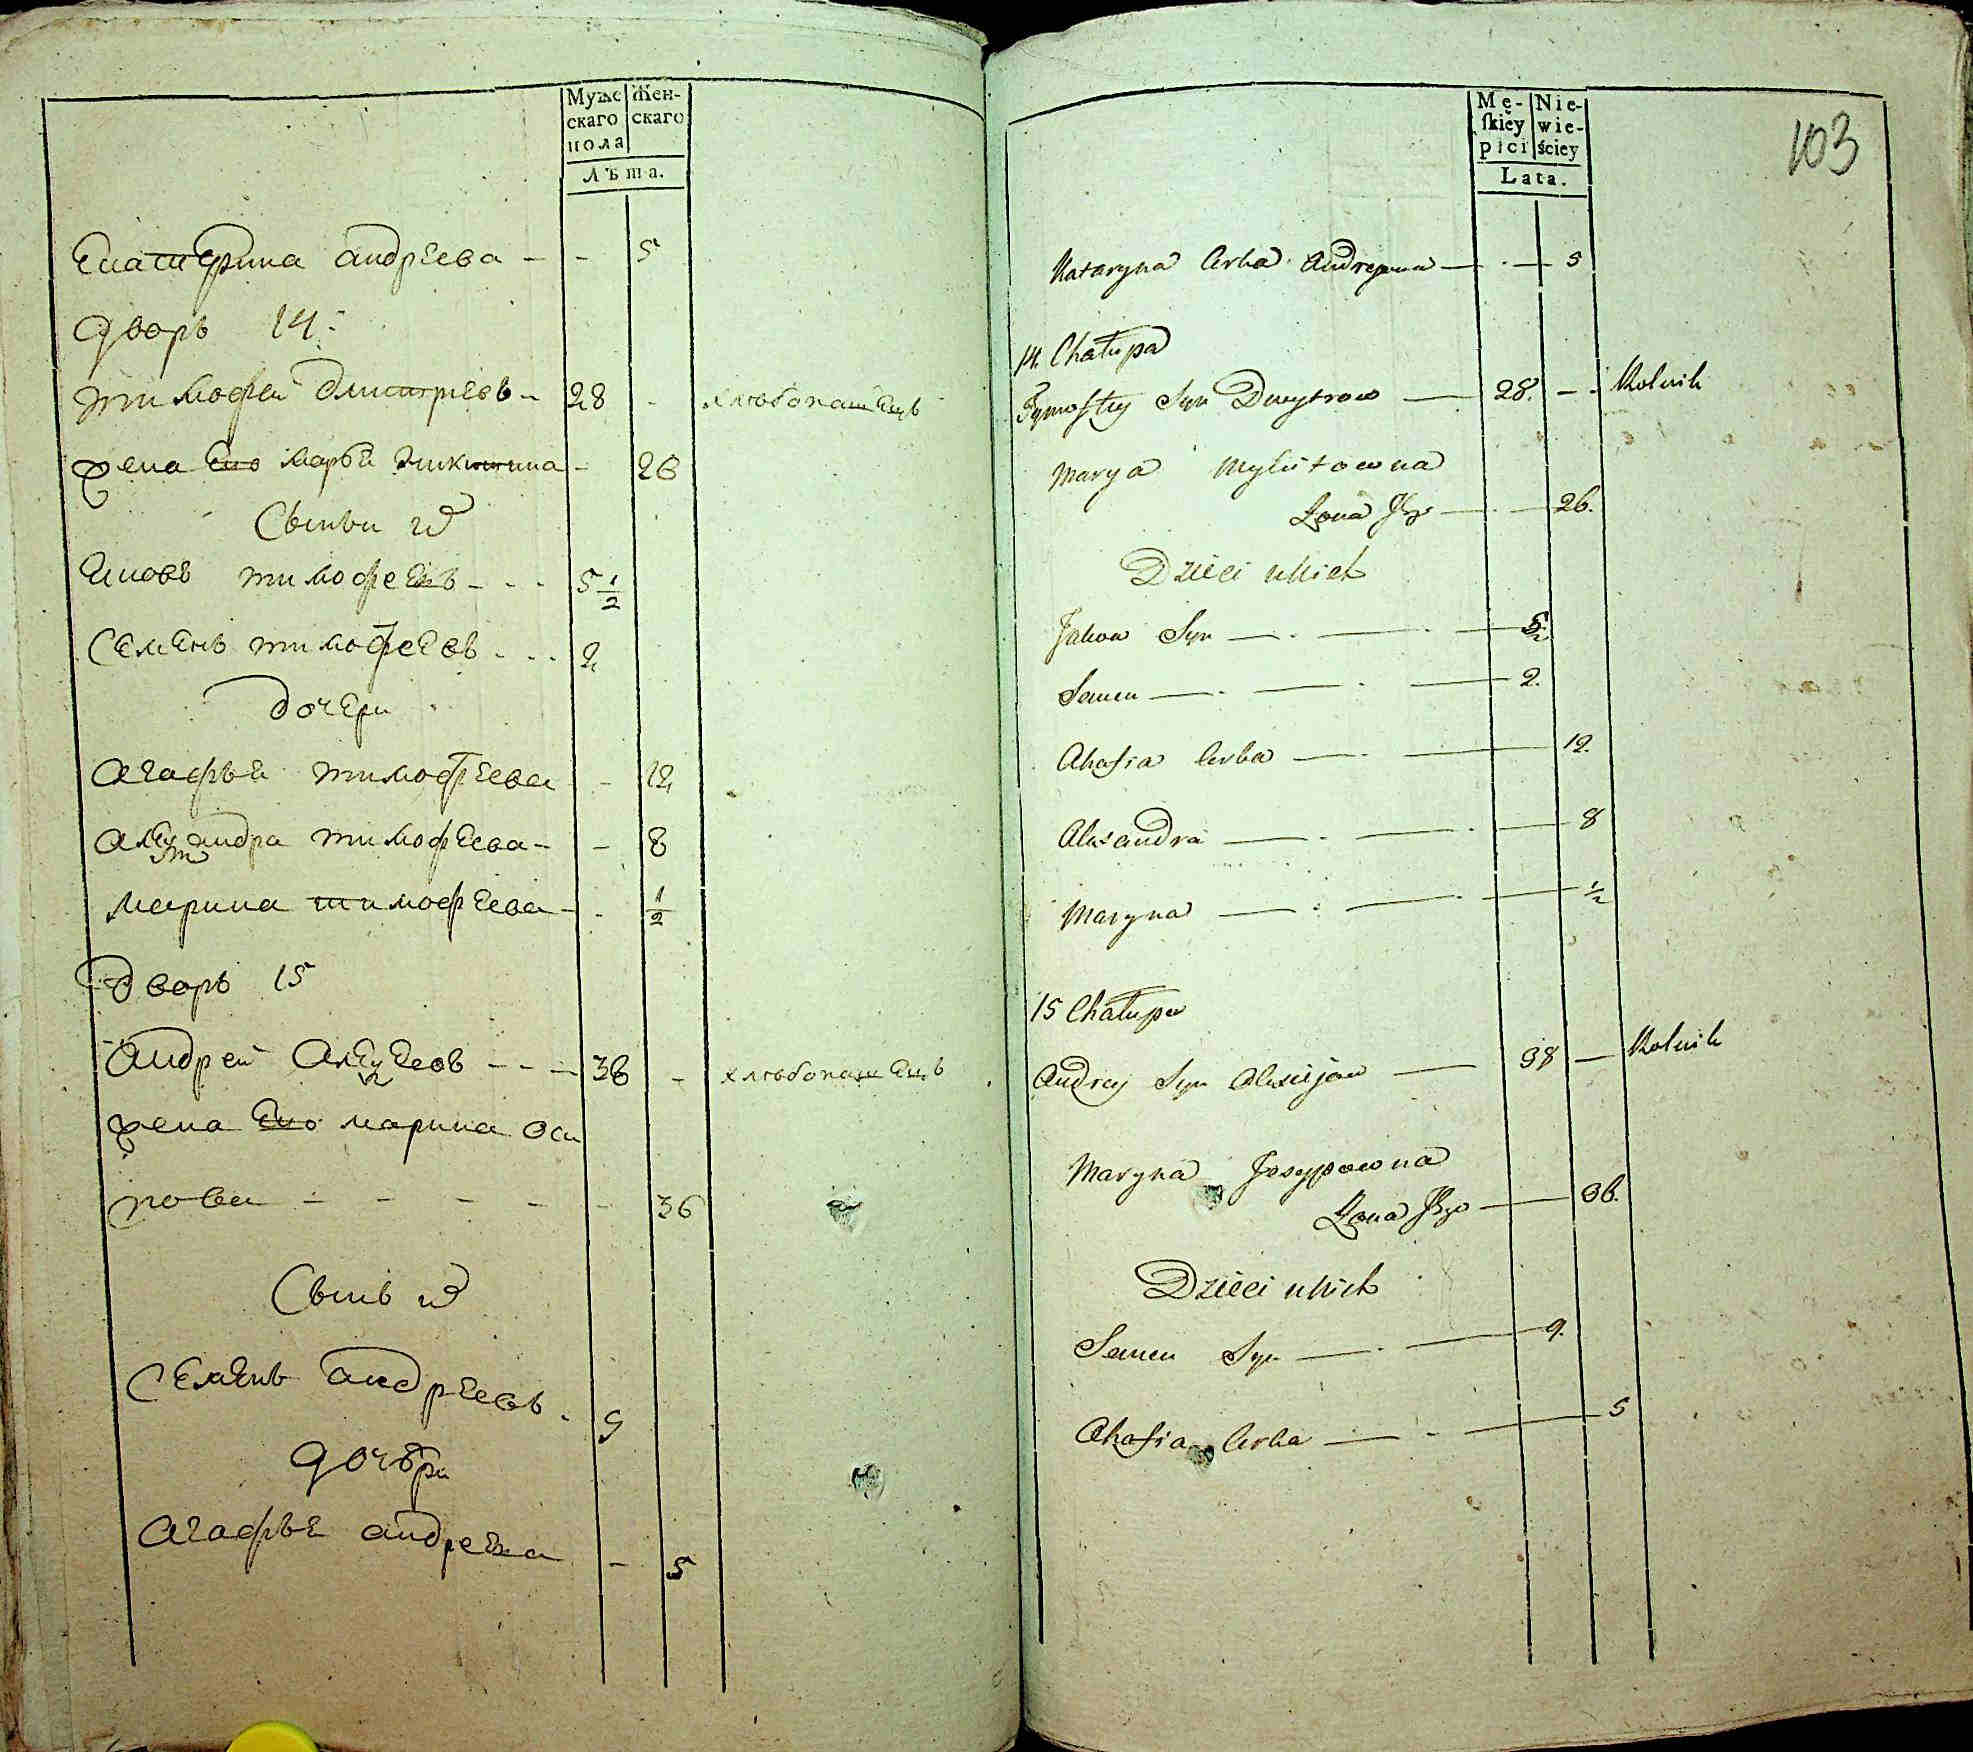 Муже
скаго
пола
Жен-
скаго
Лѣта.
Екатерина андреева - - 5
дворъ 14:
тимофеи дмитриевъ - 28 - хлѣбопашецъ
жена ево марьѣ никитина - 26
Сыны их
Яковъ тимофеевъ - - - 5 1/2
Семенъ тимофеевъ - - - 2
дочери
агафьѣ тимофеева - 12
александра тимофеева - - 8
марина тимофеева - - 1/2
дворъ 15
андреи алексеевъ - - - 38 - хлѣбопашецъ
жена ево марина оси
пова - - - - - 36
Сынъ их
Семенъ андреевъ - 9
дочери
агафьѣ андреева - 5
Mę-
skiéy
płci
Nie-
wie-
ściey
Lata.
103
Kataryna Corka Andrejowna — · — 5
14. Chałupa
Tymofiey Syn Dmytrow — 28. — - Rolnik
Marya Mykitowna
Żona Jego — · — 26.
Dzieci u Nich
Jakow Syn — · — · — 5 1/2
Semen — · — · — 2.
Ahafia Corka — · — 12.
Alexandra — · — · — 8
Maryna — · — · — 1/2
15 Chałupa
Andrey Syn Alexiejow — 38 — Rolnik
Maryna Josypowna
Żona Jego — 36.
Dzieci u Nich
Semen Syn — · — 9.
Ahafia Corka — - — 5